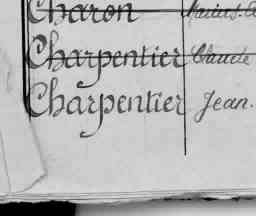 Charon
Charpentier Claude
Charpentier Jean.